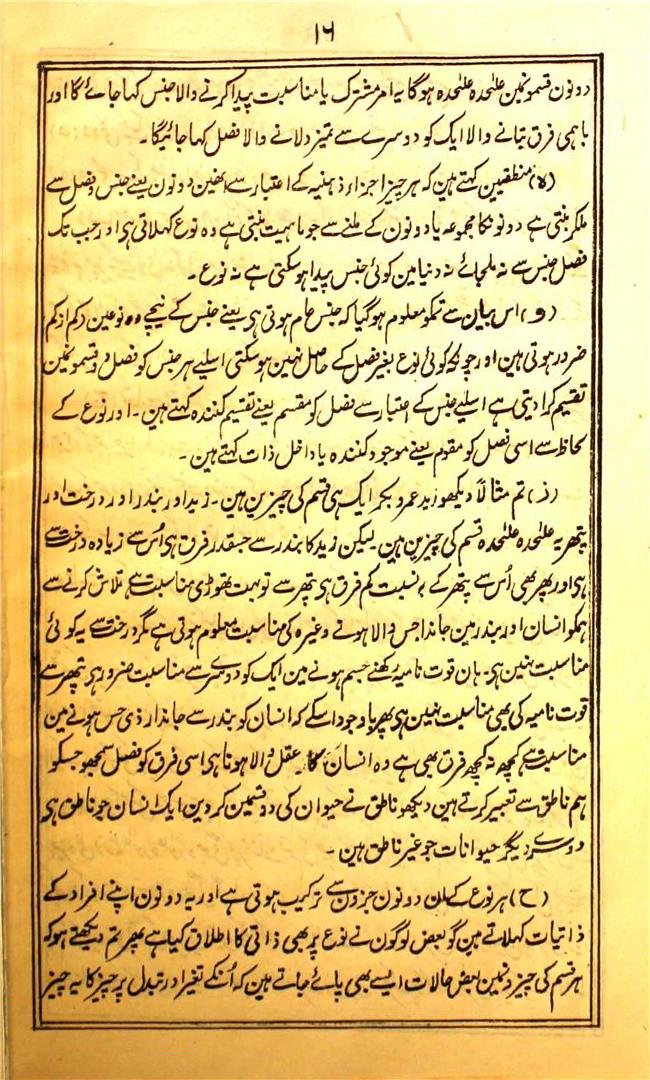 ۱۶
دونون قسمونمین علٰحدہ علٰحدہ ہوگا یہ امر مشترک یا مناسبت پیدا کرنے والا جنس کہا جائے گا اور
باہمی فرق بتانے والا ایک کو دوسرے سے تمیز دلانے والا فصل کہا جائیگا۔
(ہ) منطقیین کہتے ہین کہ ہر چیز اجزاء ذہنیہ کے اعتبار سے انھین دونون یعنے جنس و فصل سے
ملکر بنتی ہے دونونکا مجموعہ یا دونون کے ملنے سے جو ماہیت بنتی ہے وہ نوع کہلاتی ہی اور جب تک
فصل جنس سے نہ ملجائے نہ دنیا مین کوئی جنس پیدا ہوسکتی ہے نہ نوع۔
(و) اس بیان سے تمکو معلوم ہوگیا کہ جنس عام ہوتی ہی یعنے جنس کے نیچے دو نوعین کم از کم
ضرور ہوتی ہین اور چونکہ کوئی نوع بغیر فصل کے حاصل نہین ہوسکتی اسلیے ہر جنس کو فصل دو قسمونمین
تقسیم کرا دیتی ہے اسلیے جنس کے اعتبار سے فصل کو مقسم یعنے تقسیم کنندہ کہتے ہین۔ اور نوع کے
لحاظ سے اسی فصل کو مقوم یعنے موجود کنندہ یا داخل ذات کہتے ہین۔
(ز) تم مثالاً دیکھو زید عمرو بکر ایک ہی قسم کی چیزین ہین۔ زید اور بندر اور درخت اور
پتھر یہ علٰحدہ علٰحدہ قسم کی چیزین ہین لیکن زید کا بندر سے جسقدر فرق ہی اُس سے زیادہ درخت سے
ہی اور پھر بھی اُس سے پتھر کے بہ نسبت کم فرق ہی پتھر سے تو بہت تھوڑی مناسبت ہے تلاش کرنے سے
ہمکو انسان اور بندر مین جاندار حس والا ہونے وغیرہ کی مناسبت معلوم ہوتی ہے مگر درخت سے یہ کوئی
مناسبت نہین ہی۔ ہان قوت نامیہ رکھنے جسم ہونے مین ایک کو دوسرے سے مناسبت ضرور ہی پتھر سے
قوت نامیہ کی بھی مناسبت نہین ہی پھر باوجود اسکے کہ انسان کو بندر سے جاندار ذی حس ہونے مین
مناسبت ہے کچھ نہ کچھ فرق بھی ہے وہ انسان کا۔ عقل والا ہونا ہی اسی فرق کو فصل سمجھو جسکو
ہم ناطق سے تعبیر کرتے ہین دیکھو ناطق نے حیوان کی دو قسمین کر دین ایک انسان جو ناطق ہی
دوسرے دیگر حیوانات جو غیر ناطق ہین۔
(ح) ہر نوع کے ان دونون جزون سے ترکیب ہوتی ہے اور یہ دونون اپنے افراد کے
ذاتیات کہلاتے ہین گو بعض لوگون نے نوع پر بھی ذاتی کا اطلاق کیا ہے پھر تم دیکھتے ہو کہ
ہر قسم کی چیزونمین بعض حالات ایسے بھی پائے جاتے ہین کہ اُنکے تغیر اور تبدل پر چیز کا یہ چیز